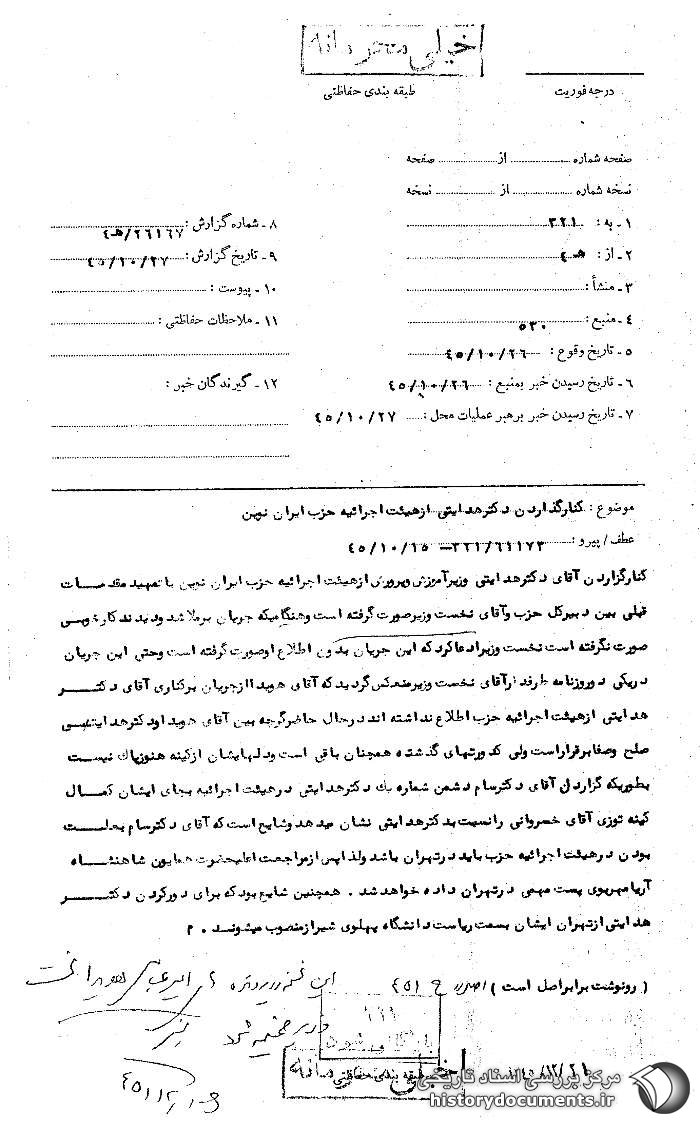 خیلی محرمانه
درجه فوریت
طبقه بندی حفاظتی
صفحه شماره ........ از ........ صفحه
نسخه شماره ........ از ........ نسخه
۱ ـ به : ۳۲۱
۲ ـ از : ه‍ ۴
۳ ـ منشأ :
۴ ـ منبع : ۵۳۰
۵ ـ تاریخ وقوع : ۴۵/۱۰/۲۶
۶ ـ تاریخ رسیدن خبر بمنبع : ۴۵/۱۰/۲۶
۷ ـ تاریخ رسیدن خبر برهبر عملیات محل : ۴۵/۱۰/۲۷
۸ ـ شماره گزارش : ۲۶۱۶۷/ه‍ ۴
۹ ـ تاریخ گزارش : ۴۵/۱۰/۲۷
۱۰ ـ پیوست :
۱۱ ـ ملاحظات حفاظتی :
۱۲ ـ گیرندگان خبر :
موضوع : کنارگذاردن دکترهدایتی ازهیئت اجرائیه حزب ایران نوین
عطف / پیرو : ۳۲۱/۶۱۱۷۳ – ۴۵/۱۰/۱۵
کنارگزاردن آقای دکترهدایتی وزیرآموزش وپرورش ازهیئت اجرائیه حزب ایران نوین باتمهید مقدمات
قبلی بین دبیرکل حزب وآقای نخست وزیرصورت گرفته است وهنگامیکه جریان برملا شد ودیدند کارخوبی
صورت نگرفته است نخست وزیرادعاکرد که این جریان بدون اطلاع اوصورت گرفته است وحتی این جریان
دریکی دوروزنامه طرفدارآقای نخست وزیرمنعکس گردید که آقای هویدا ازجریان برکناری آقای دکتر
هدایتی ازهیئت اجرائیه حزب اطلاع نداشته اند درحال حاضرگرچه بین آقای هویدا ودکترهدایتی
صلح وصفا برقراراست ولی کدورتهای گذشته همچنان باقی است ودلهایشان ازکینه هنوزپاک نیست
بطوریکه گزاردن آقای دکترسام دشمن شماره یک دکترهدایتی درهیئت اجرائیه بجای ایشان کمال
کینه توزی آقای خسروانی رانسبت بدکترهدایتی نشان میدهد وشایع است که آقای دکترسام بعلت
بودن درهیئت اجرائیه حزب باید درتهران باشد ولذا پس ازمراجعت اعلیحضرت همایون شاهنشاه
آریامهربوی پست مهمی درتهران داده خواهد شد . همچنین شایع بود که برای دورکردن دکتر
هدایتی ازتهران ایشان بسمت ریاست دانشگاه پهلوی شیرازمنصوب میشوند . م
( رونوشت برابراصل است ) اصل در ح ۴۵۱
این نسخه در پرونده امیرعباس هویدا
بایگانی شود
طبقه بندی حفاظتی
خیلی محرمانه
مرکز بررسی اسناد تاریخی
historydocuments.ir